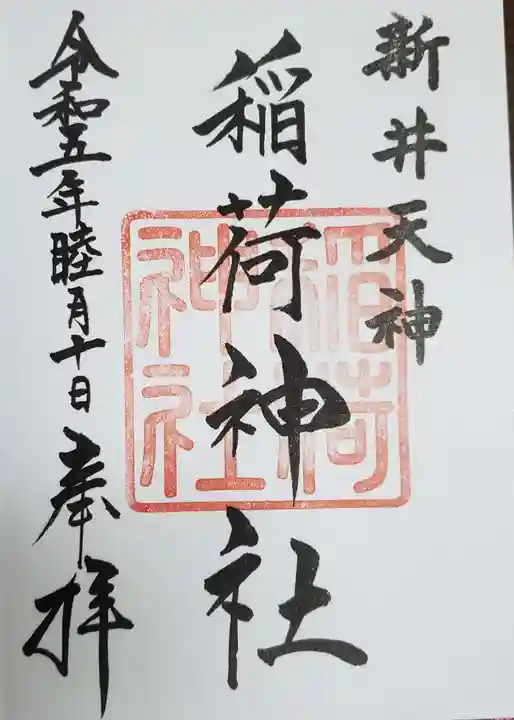 新井天神
稲荷神社
令和五年睦月十日 奉拝
稲荷
神社